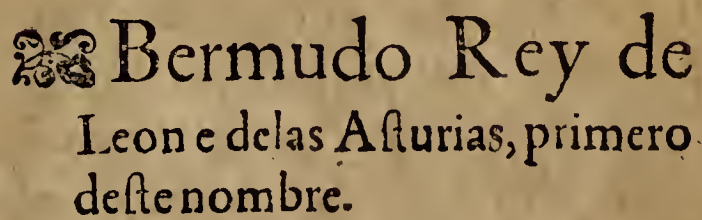 Bermudo Rey de
Leon e delas Aſturias, primero
deſte nombre.